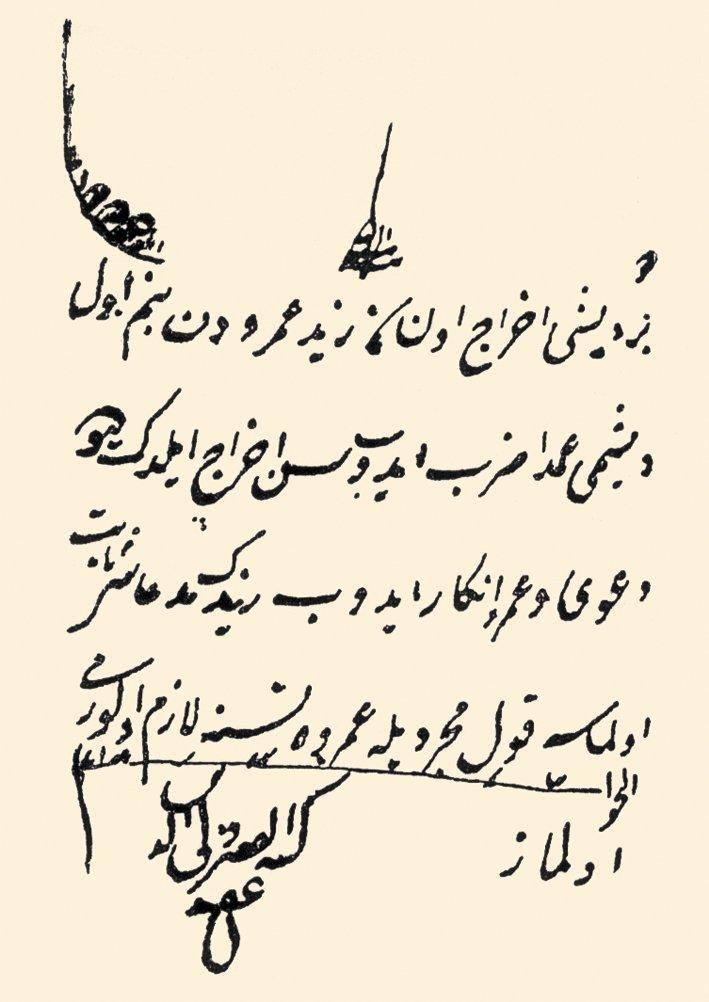 بر دیشی اخراج اولنان زید عمرودن بنم اول
دیشمی عمدا ضرب ایدوب سن اخراج ایلدك دیو
دعوی و عمرو انكار ایدوب زیدك مدعاسی ثابت
اولماسه قول مجرد یله عمروه نسنه لازم اولورمی
الجواب
اولماز
كتبه الفقیر
عفی عنه